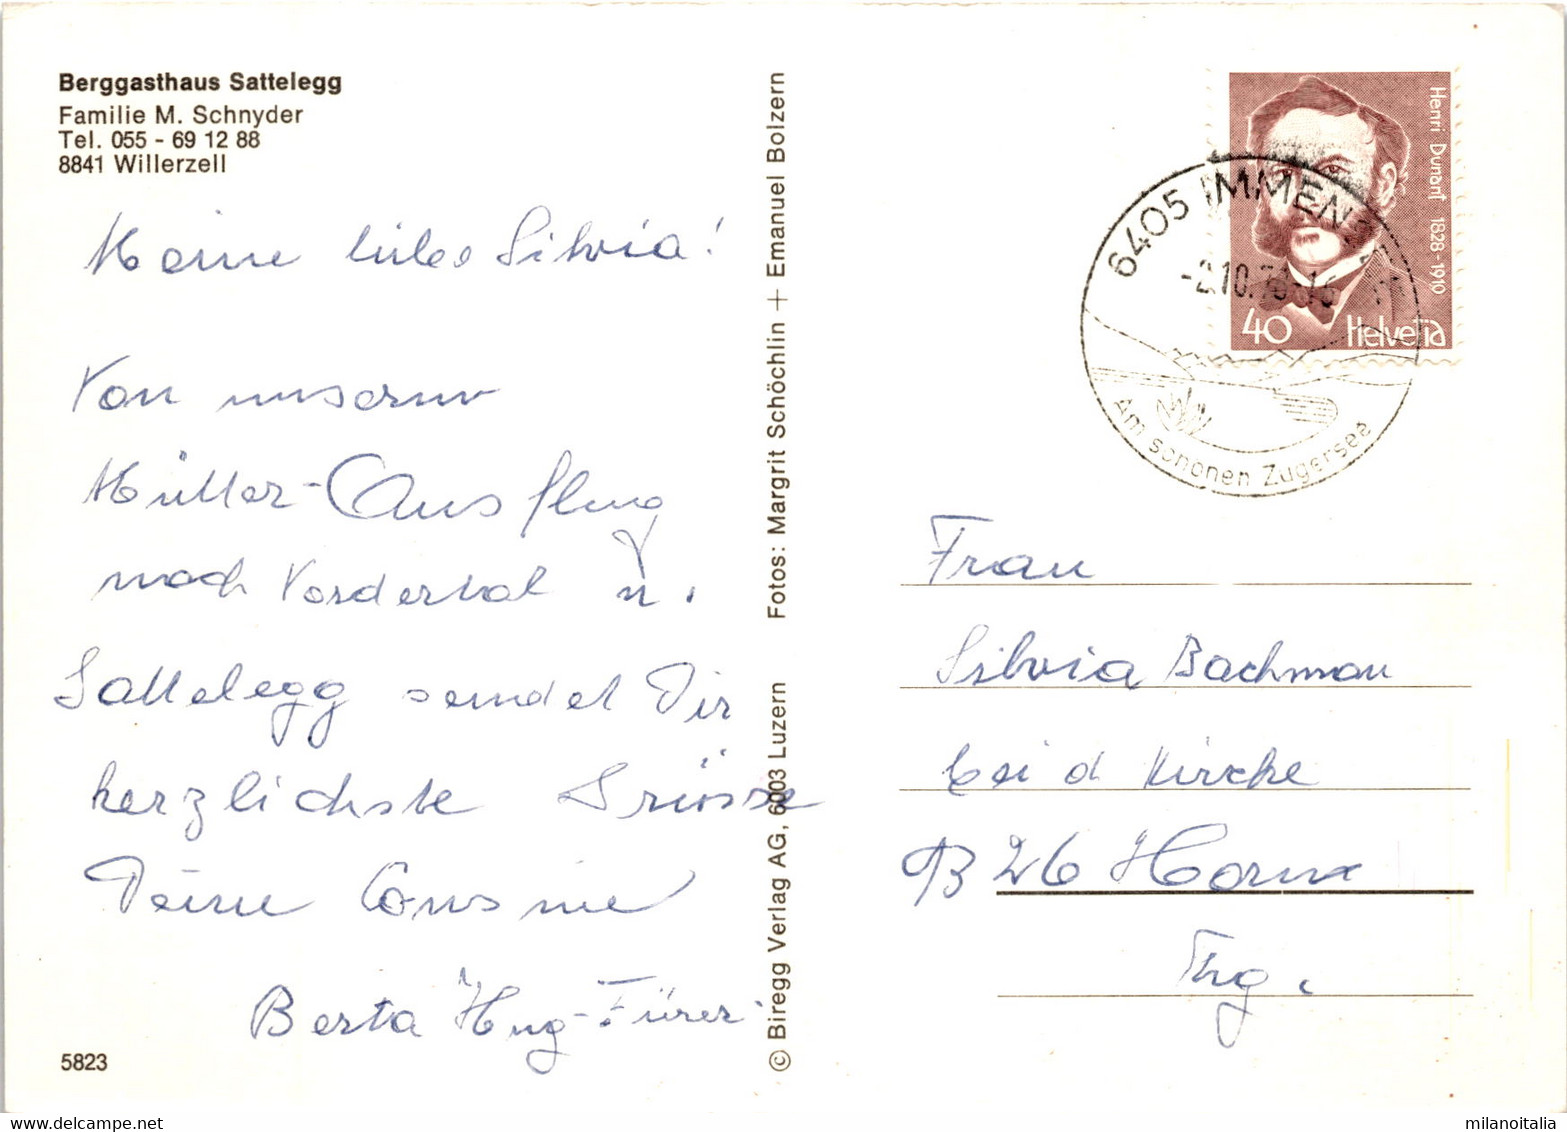 Berggasthaus Sattelegg
Familie M. Schnyder
Tel. 055 - 69 12 88
8841 Willerzell
Meine liebe Silvia!
Von unserm
Mütter-Ausflug
nach Vordertal u.
Sattelegg sendet Dir
herzlichste Grüsse
Deine Cousine
Berta Hug-Fürer
5823
© Biregg Verlag AG, 6003 Luzern Fotos: Margrit Schöchlin + Emanuel Bolzern
Henri Dunant 1828-1910
40 Helvetia
6405 IMMENSEE
-2.10.78-16
Am schönen Zugersee
Frau
Silvia Bachman
bei d Kirche
9326 Horn
Thg.
milanoitalia